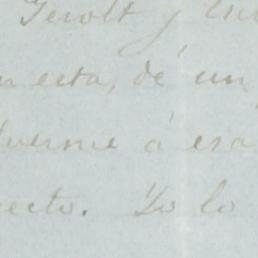 Gerolt y
esta, dé un
verme á esa
ecto. Yo lo